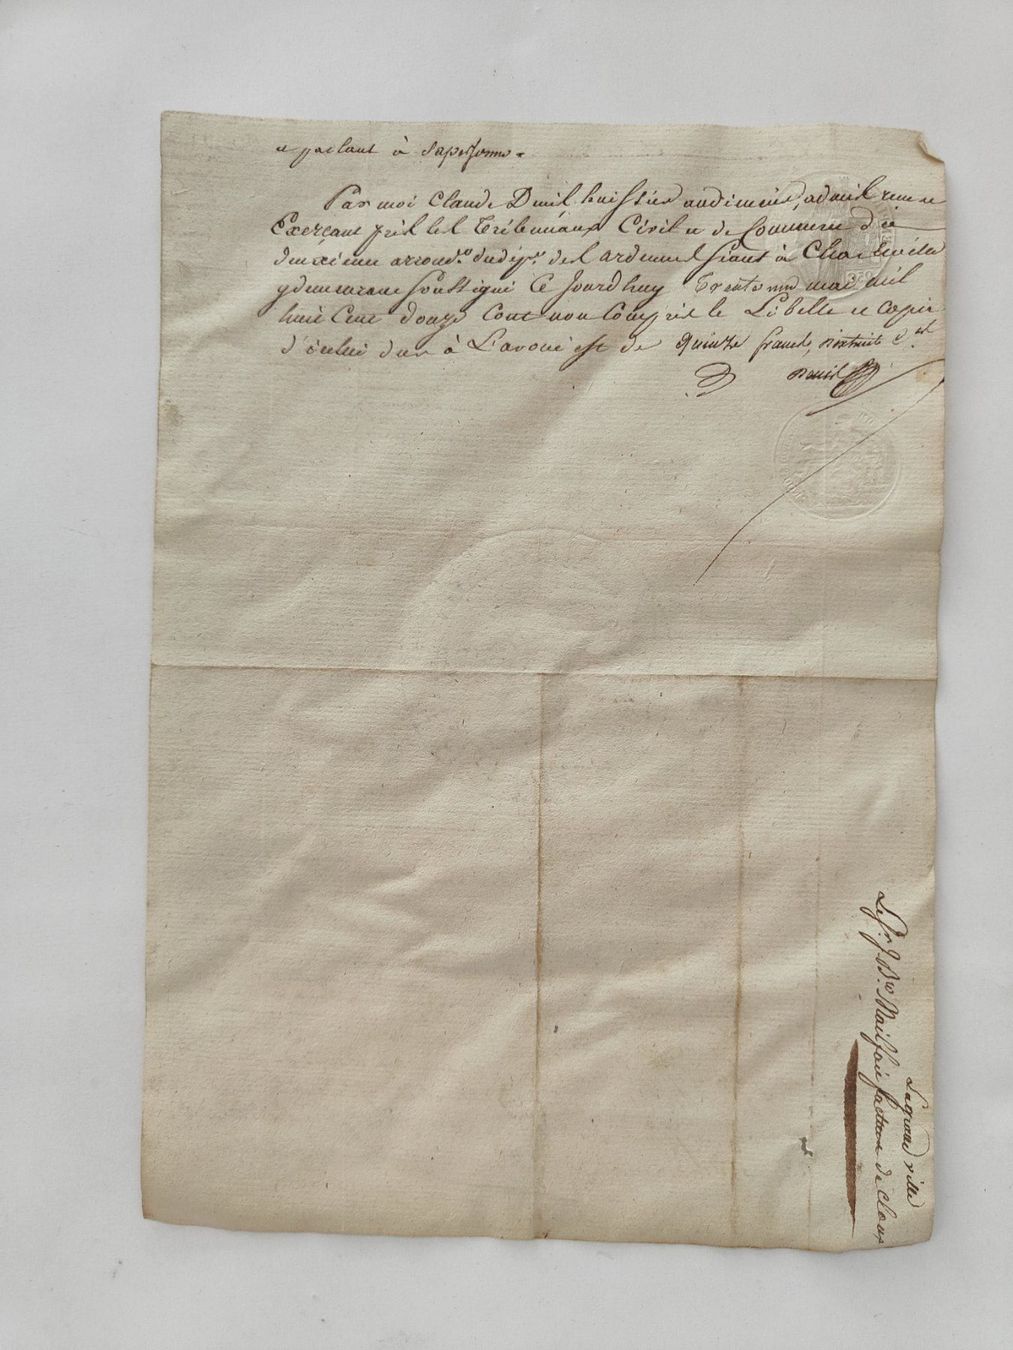 et parlant à sapersonne.
Par moi Claude Denil huissier audiencier, admil
Exerçant près lel Tribunaux Civil et de Commerce du
deuxieme arrond.t dudép.t del Ardennel séant à Charleville
y demeurant soussigné Ce Jourdhuy trente mai mil
huit Cent douze Cout non Compris le Libellé et copie
d'icelui du à L'avoué est de quinze francs,
Denil
Le Sr J. Bte Mailfait facteur de cloux
Lagrandville